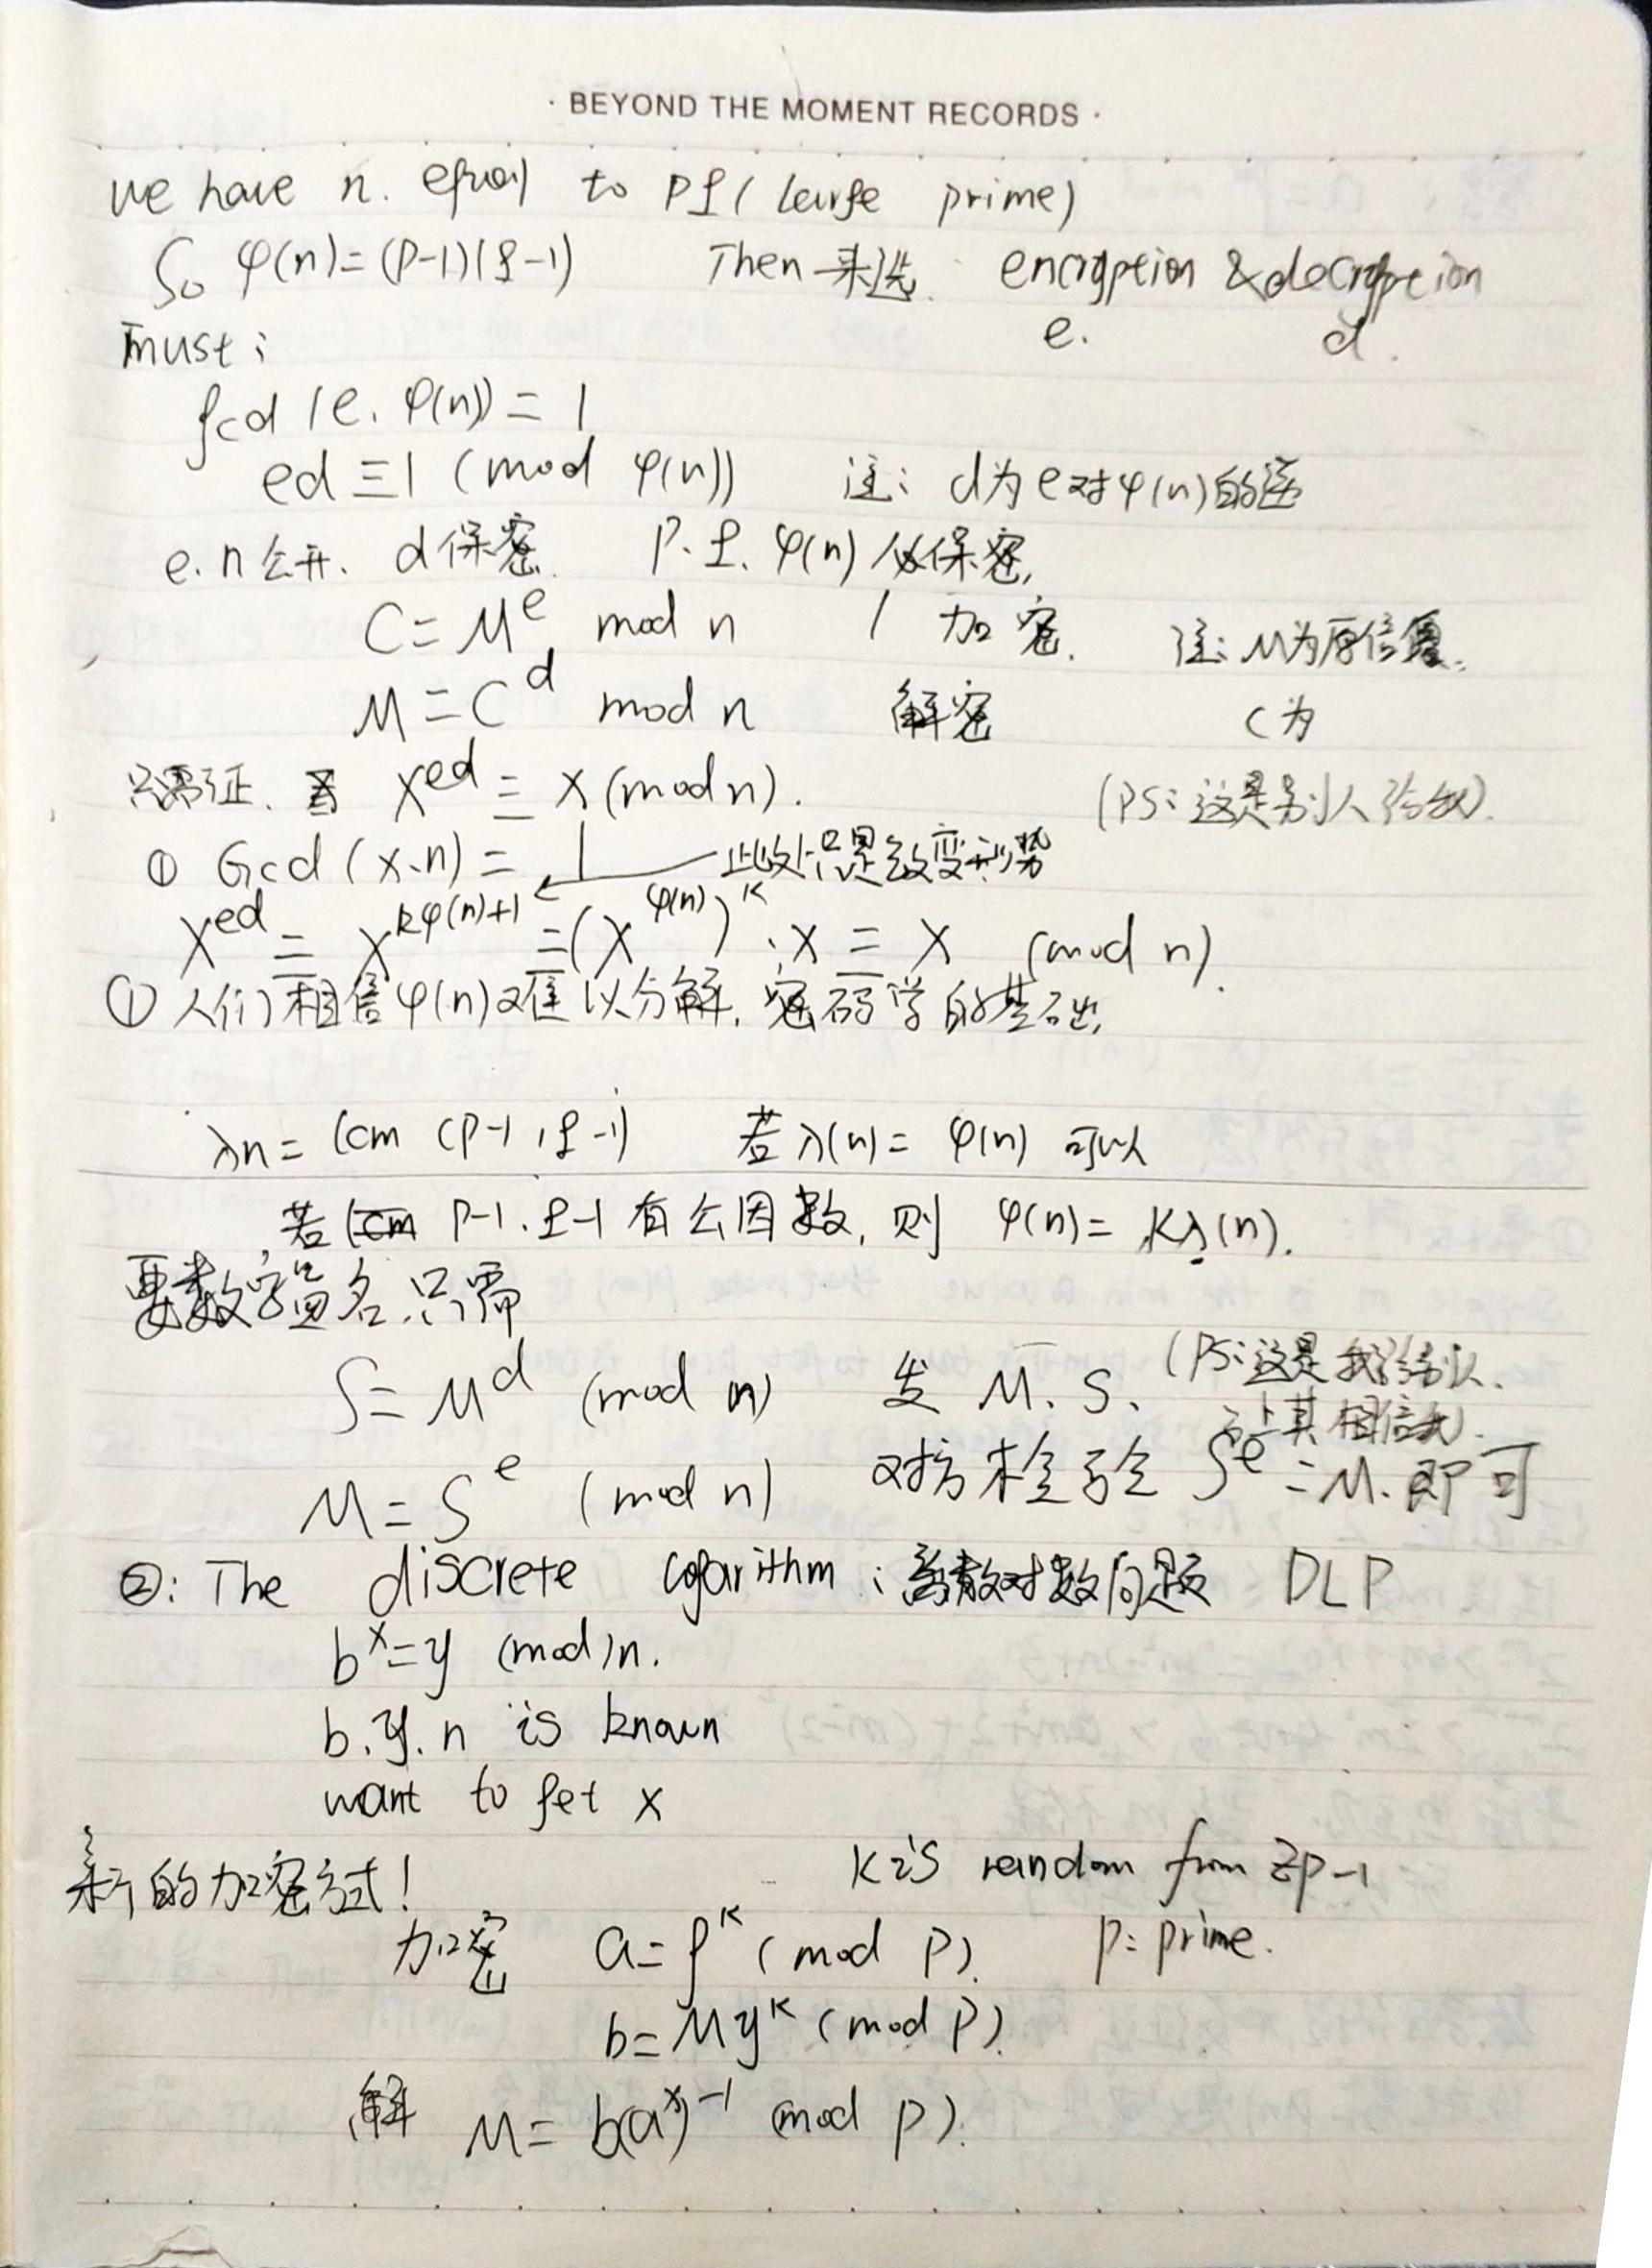 · BEYOND THE MOMENT RECORDS ·
we have n. equal to pq ( large prime)
So φ(n)=(p-1)(q-1) Then 来选 encryption & decryption
must: e. d.
gcd (e. φ(n)) = 1
ed ≡ 1 (mod φ(n)) 注: d为e对φ(n)的逆
e.n公开. d保密. p.q.φ(n)必保密,
C = M^e mod n / 加密. 注: M为原信息.
M = C^d mod n 解密 C为
只需证. x^ed ≡ x (mod n). (PS: 这是别人给我).
① Gcd (x.n) = 1 此处只是改变形势
x^ed ≡ x^kφ(n)+1 ≡ (x^φ(n))^k · x ≡ x (mod n).
① 人们相信φ(n)难以分解. 密码学的基础,
λn = lcm (p-1, q-1) 若λ(n) = φ(n) 可以
若 p-1. q-1 有公因数, 则 φ(n) = kλ(n).
要数字签名.只需
S = M^d (mod n) 发 M. S. (PS: 这是我给别人.
让其相信我).
M = S^e (mod n) 对方检验 S^e = M. 即可
②: The discrete logarithm: 离散对数问题 DLP
b^x = y (mod)n.
b.y.n is known
want to get x
新的加密方式! K is random from Zp-1
加密 a = g^k (mod p). p: prime.
b = My^k (mod p).
解 M = b(a^x)^-1 (mod p).